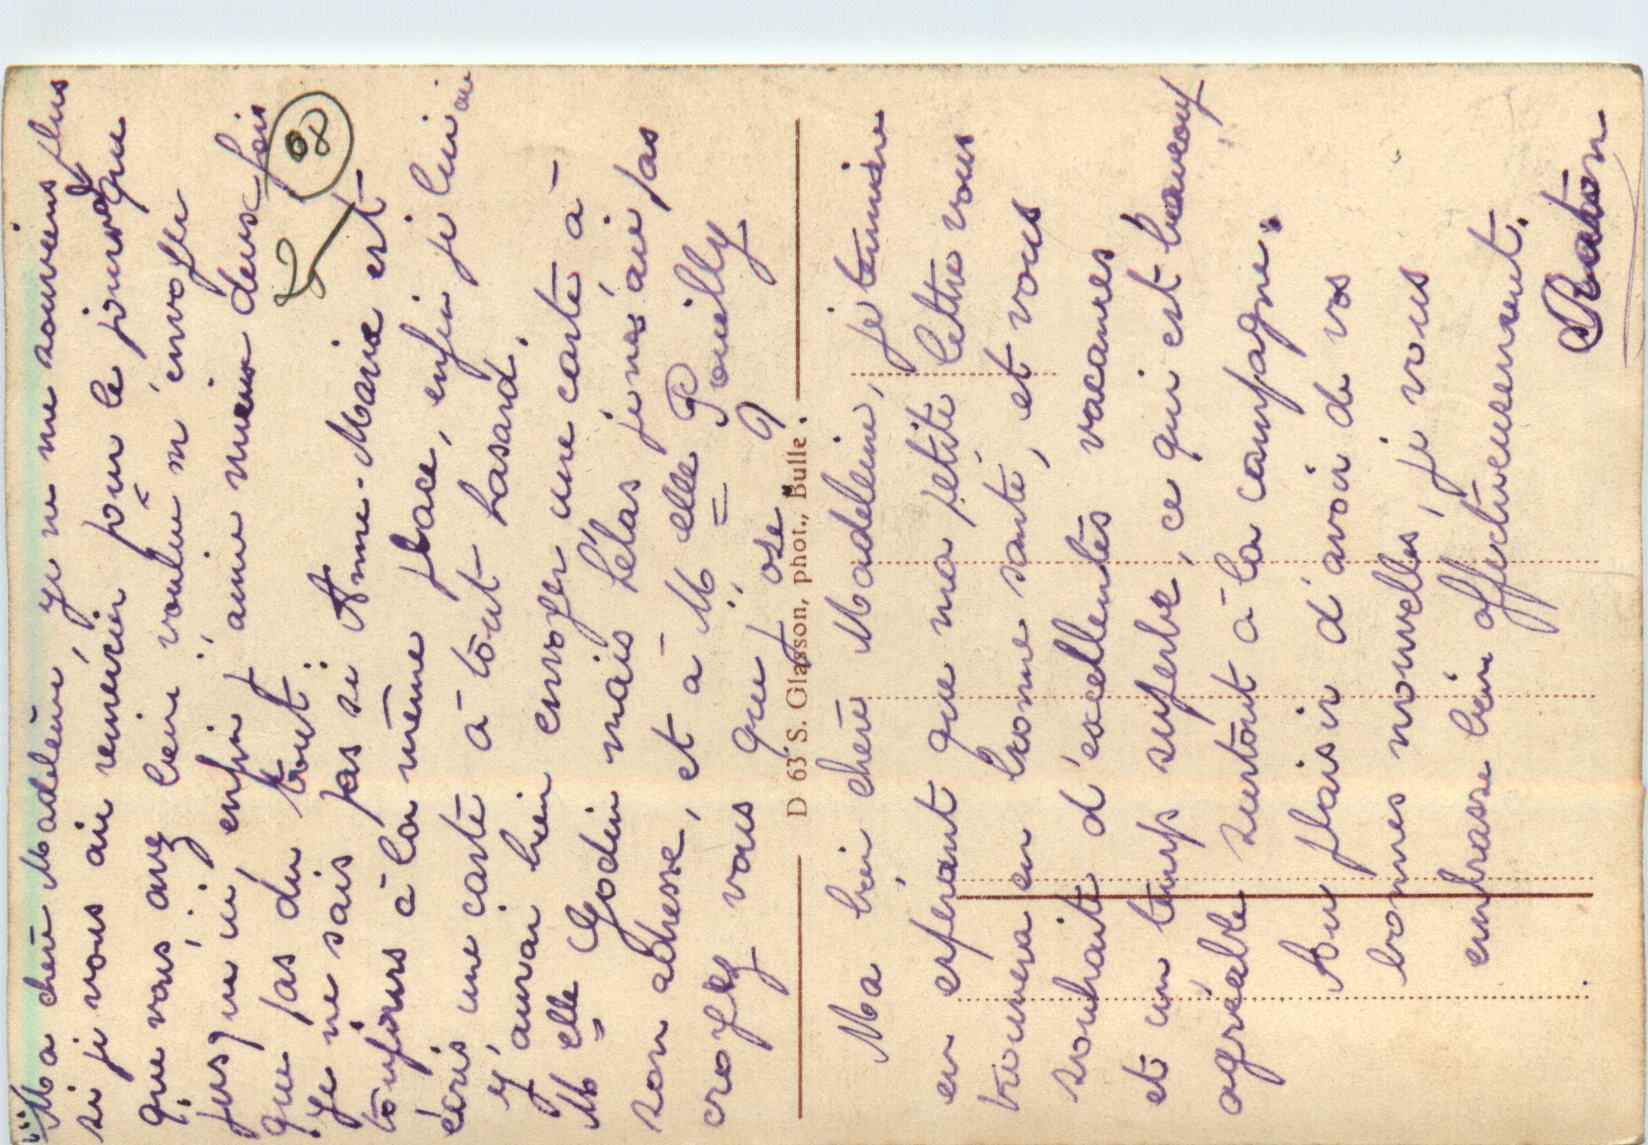 Ma chère Madeleine, je ne me souviens plus
si je vous ai remercier pour le journal que
que vous avez bien voulu m'envoyer
jusqu'ici, enfin j'aime mieux deux fois
que pas du tout.
Je ne sais pas si Anne-Marie est
toujours à la même place, enfin je lui ai
écris une carte à tout hasard.
J'aurai bien envoyer une carte à
Melle Godin mais hélas je n'ai pas
son adresse, et à Melle Pouilly
croyez vous que j'ose ?
D 63 S. Glasson, phot., Bulle.
Ma bien chère Madeleine, je termine
en espérant que ma petite lettre vous
trouvera en bonne santé, et vous
souhaite d'excellentes vacances
et un temps superbe, ce qui est beaucoup
agréable surtout à la campagne.
Au plaisir d'avoir de vos
bonnes nouvelles, je vous
embrasse bien affectueusement.